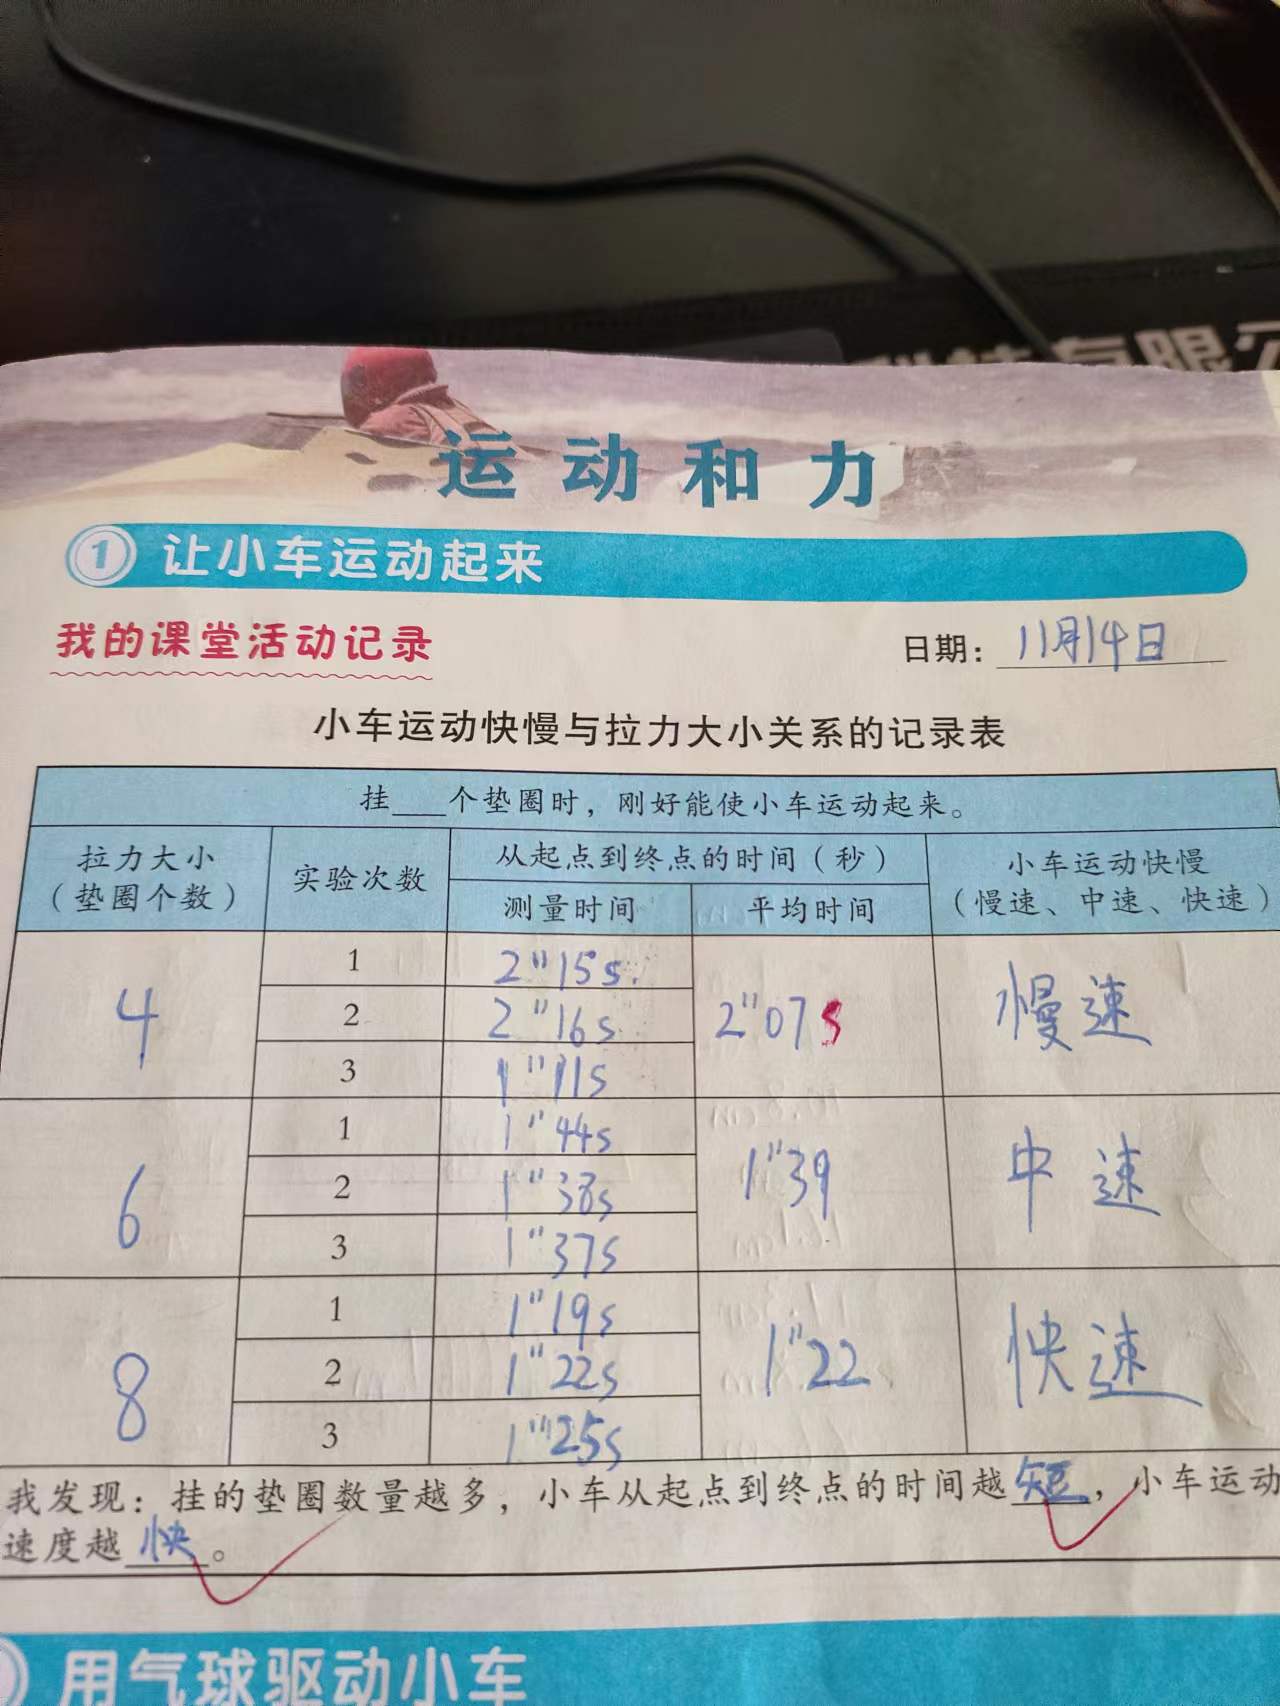 科技有限公
运动和力
1 让小车运动起来
我的课堂活动记录
日期：11月14日
小车运动快慢与拉力大小关系的记录表
挂___个垫圈时，刚好能使小车运动起来。
拉力大小（垫圈个数） 实验次数 从起点到终点的时间（秒） 小车运动快慢（慢速、中速、快速）
测量时间 平均时间
4 1 2"15s. 2"07s 慢速
2 2"16s
3 1"11s
6 1 1"44s 1"39 中速
2 1"38s
3 1"37s
8 1 1"19s 1"22 快速
2 1"22s
3 1"25s
我发现：挂的垫圈数量越多，小车从起点到终点的时间越短，小车运动
速度越快。
用气球驱动小车